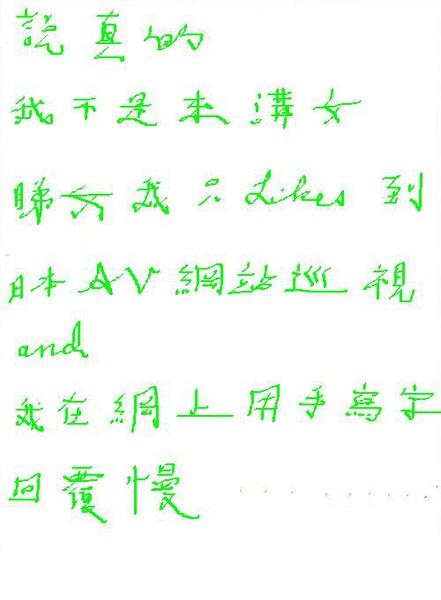 說真的
我不是來溝女
睇女我只Likes到
日本AV網站巡視
and
我在網上用手寫字
回覆慢..........